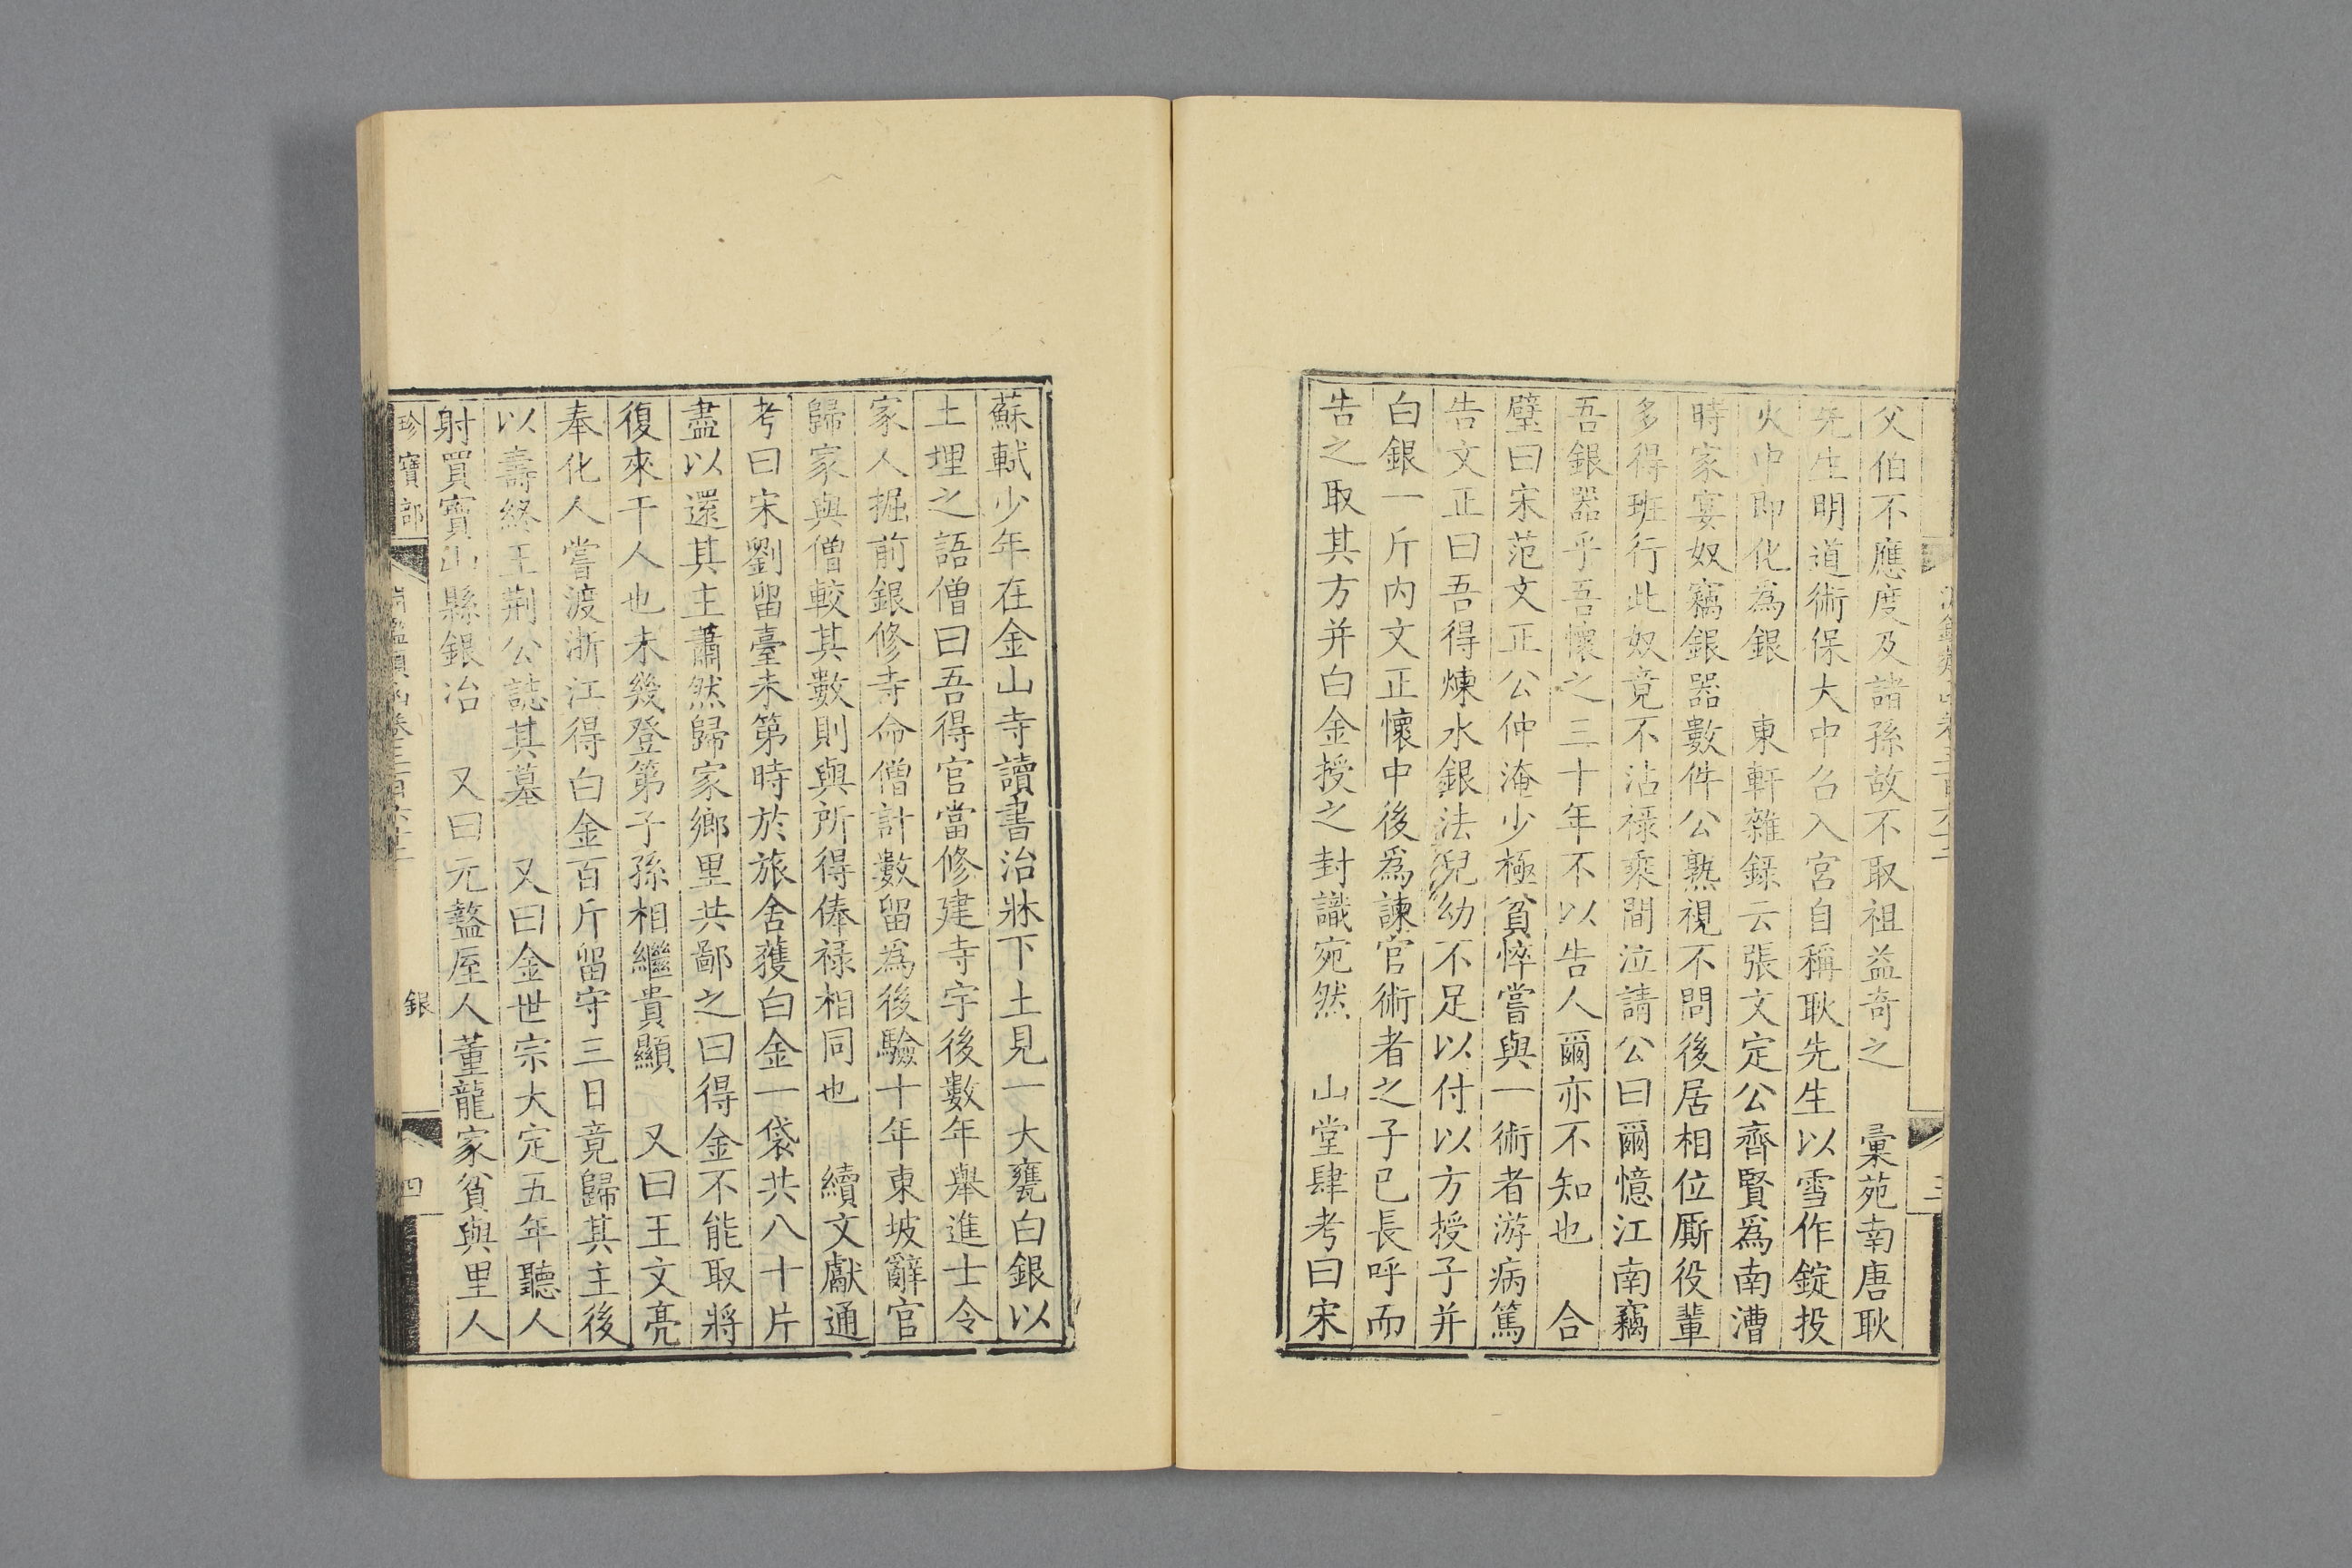 父伯不應度及諸孫故不取祖益奇之　彚苑南唐耿
先生明道術保大中召入宮自稱耿先生以雪作錠投
火中即化為銀　東軒雜錄云張文定公齊賢爲南漕
時家宴奴竊銀器數件公熟視不問後居相位厮役輩
多得班行此奴竟不沾禄乘間泣請公曰爾憶江南竊
吾銀器乎吾懷之三十年不以告人爾亦不知也　合
璧曰宋范文正公仲淹少極貧悴嘗與一術者游病篤
告文正曰吾得煉水銀法兒幼不足以付以方授子并
白銀一斤内文正懷中後爲諫官術者之子已長呼而
告之取其方并白金授之封識宛然　山堂肆考曰宋
蘇軾少年在金山寺讀書治牀下土見一大甕白銀以
土埋之語僧曰吾得官當修建寺宇後數年舉進士令
家人掘前銀修寺命僧計數留爲後驗十年東坡辭官
歸家與僧較其數則與所得俸禄相同也　續文獻通
考曰宋劉留臺未第時於旅舍獲白金一袋共八十片
盡以還其主蕭然歸家鄉里共鄙之曰得金不能取將
復來干人也未幾登第子孫相繼貴顯　又曰王文亮
奉化人嘗渡浙江得白金百斤留守三日竟歸其主後
以壽終王荆公誌其墓　又曰金世宗大定五年聽人
射買寶山縣銀冶　又曰元盩厔人董龍家貧與里人
珍寶部　銀　四